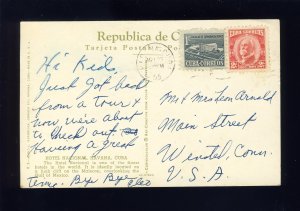 Republica de C
Tarjeta Postal
Hi Kids,
Just got back
from a tour &
now were about
to check out.
Having a great
time. Bye Bye
Mr & Mrs Arnold
Main Street
Winsted, Conn.
U.S.A.
CUBA CORREOS
CUBA CORREOS
HOTEL NACIONAL, HAVANA, CUBA
The Hotel Nacional is one of the finest
hotels in the world. It is ideally located on
a cliff on the Malecon, overlooking the
Gulf of Mexico